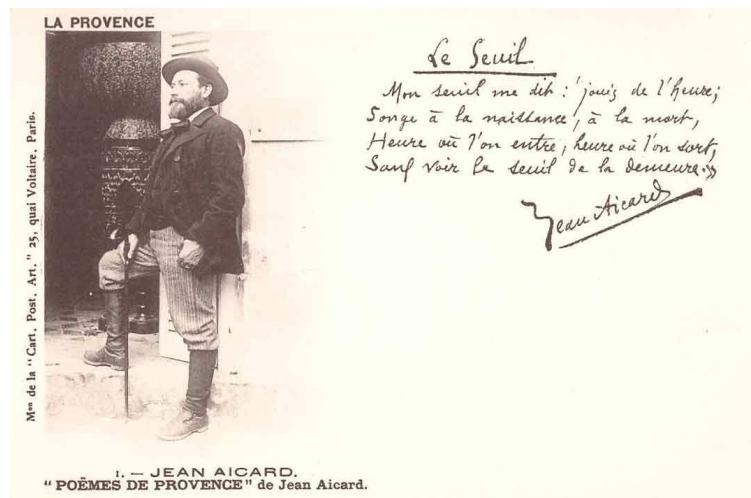 LA PROVENCE
Mon de la "Cart. Post. Art." 25, quai Voltaire. Paris.
Le Seuil
Mon seuil me dit : "jouis de l'heure;
Songe à la naissance, à la mort,
Heure où l'on entre, heure où l'on sort,
Sans voir le seuil de la demeure.»
Jean Aicard
1. — JEAN AICARD.
"POËMES DE PROVENCE" de Jean Aicard.